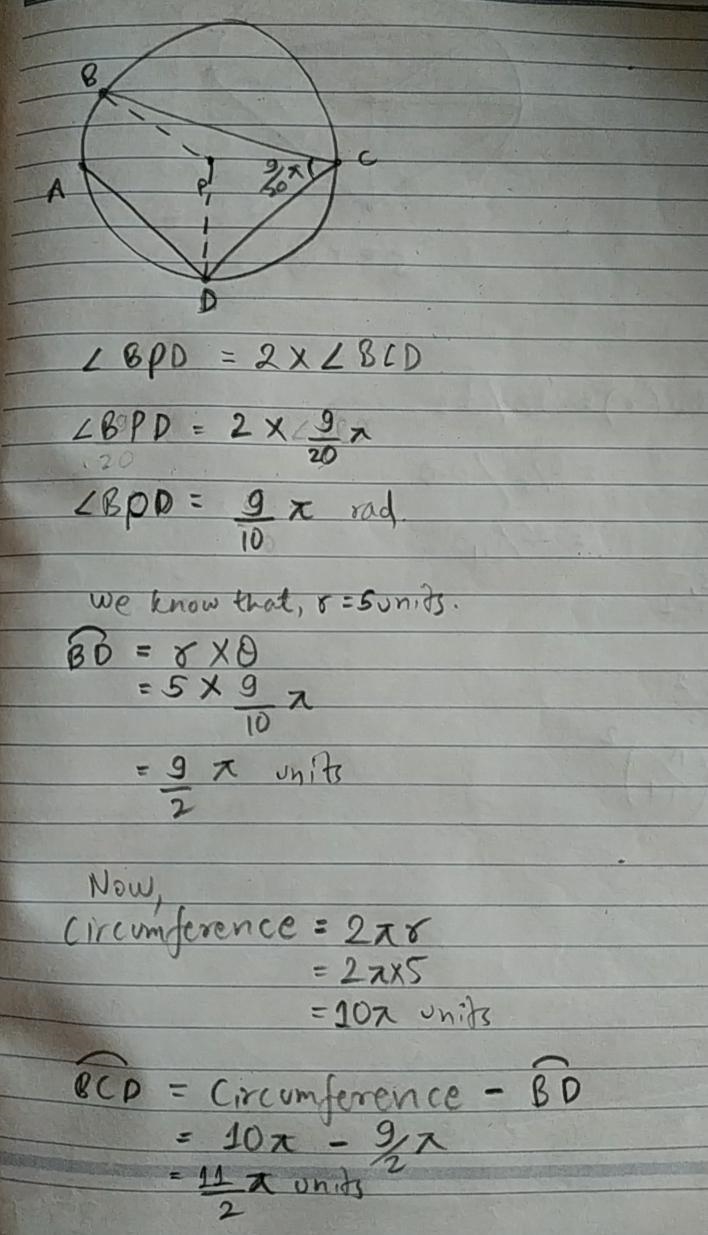 B
C
9/20 π
P
A
D
∠BPD = 2 × ∠BCD
∠BPD = 2 × 9/20 π
∠BPD = 9/10 π rad.
we know that, r = 5 units.
B͡D = r × θ
= 5 × 9/10 π
= 9/2 π units
Now,
Circumference = 2πr
= 2π×5
= 10π units
B͡CD = Circumference - B͡D
= 10π - 9/2 π
= 11/2 π units